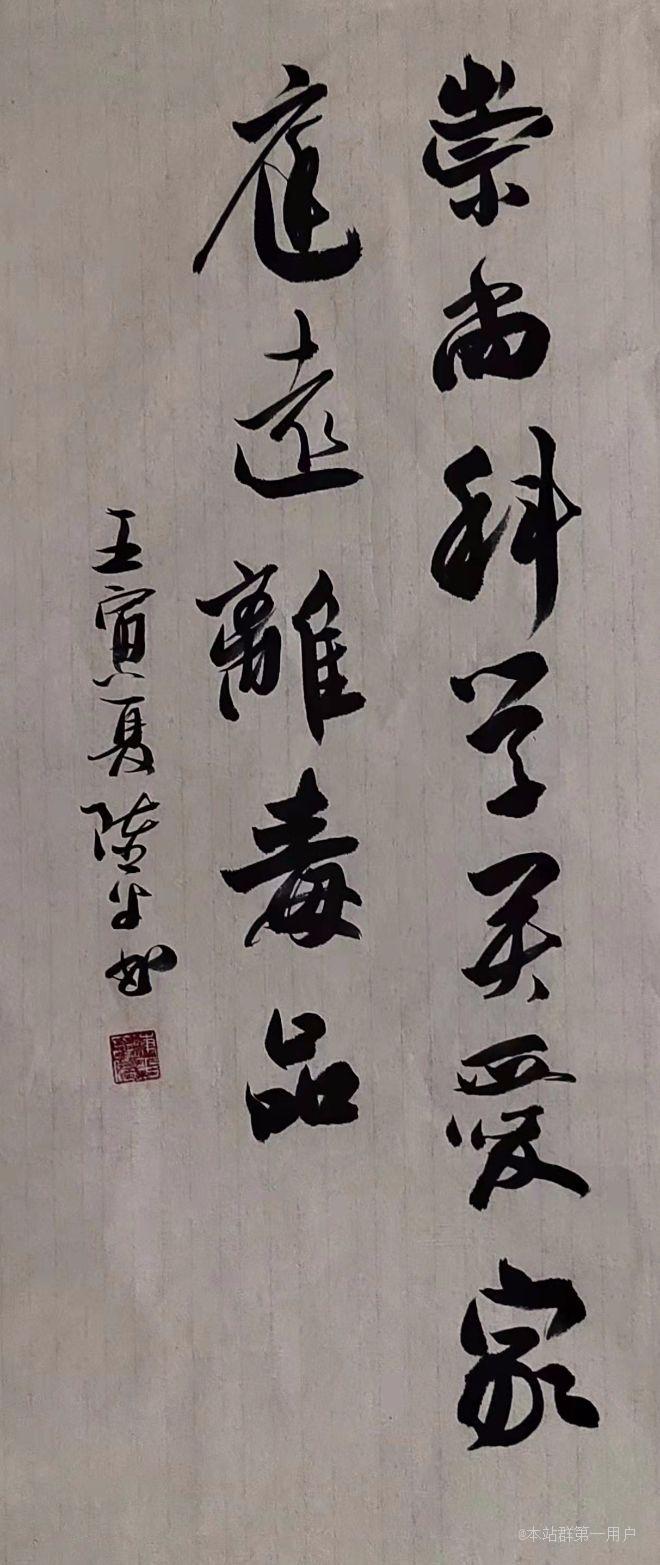 崇尚科学关爱家
庭遠離毒品
壬寅夏陳平书
@本站群第一用户